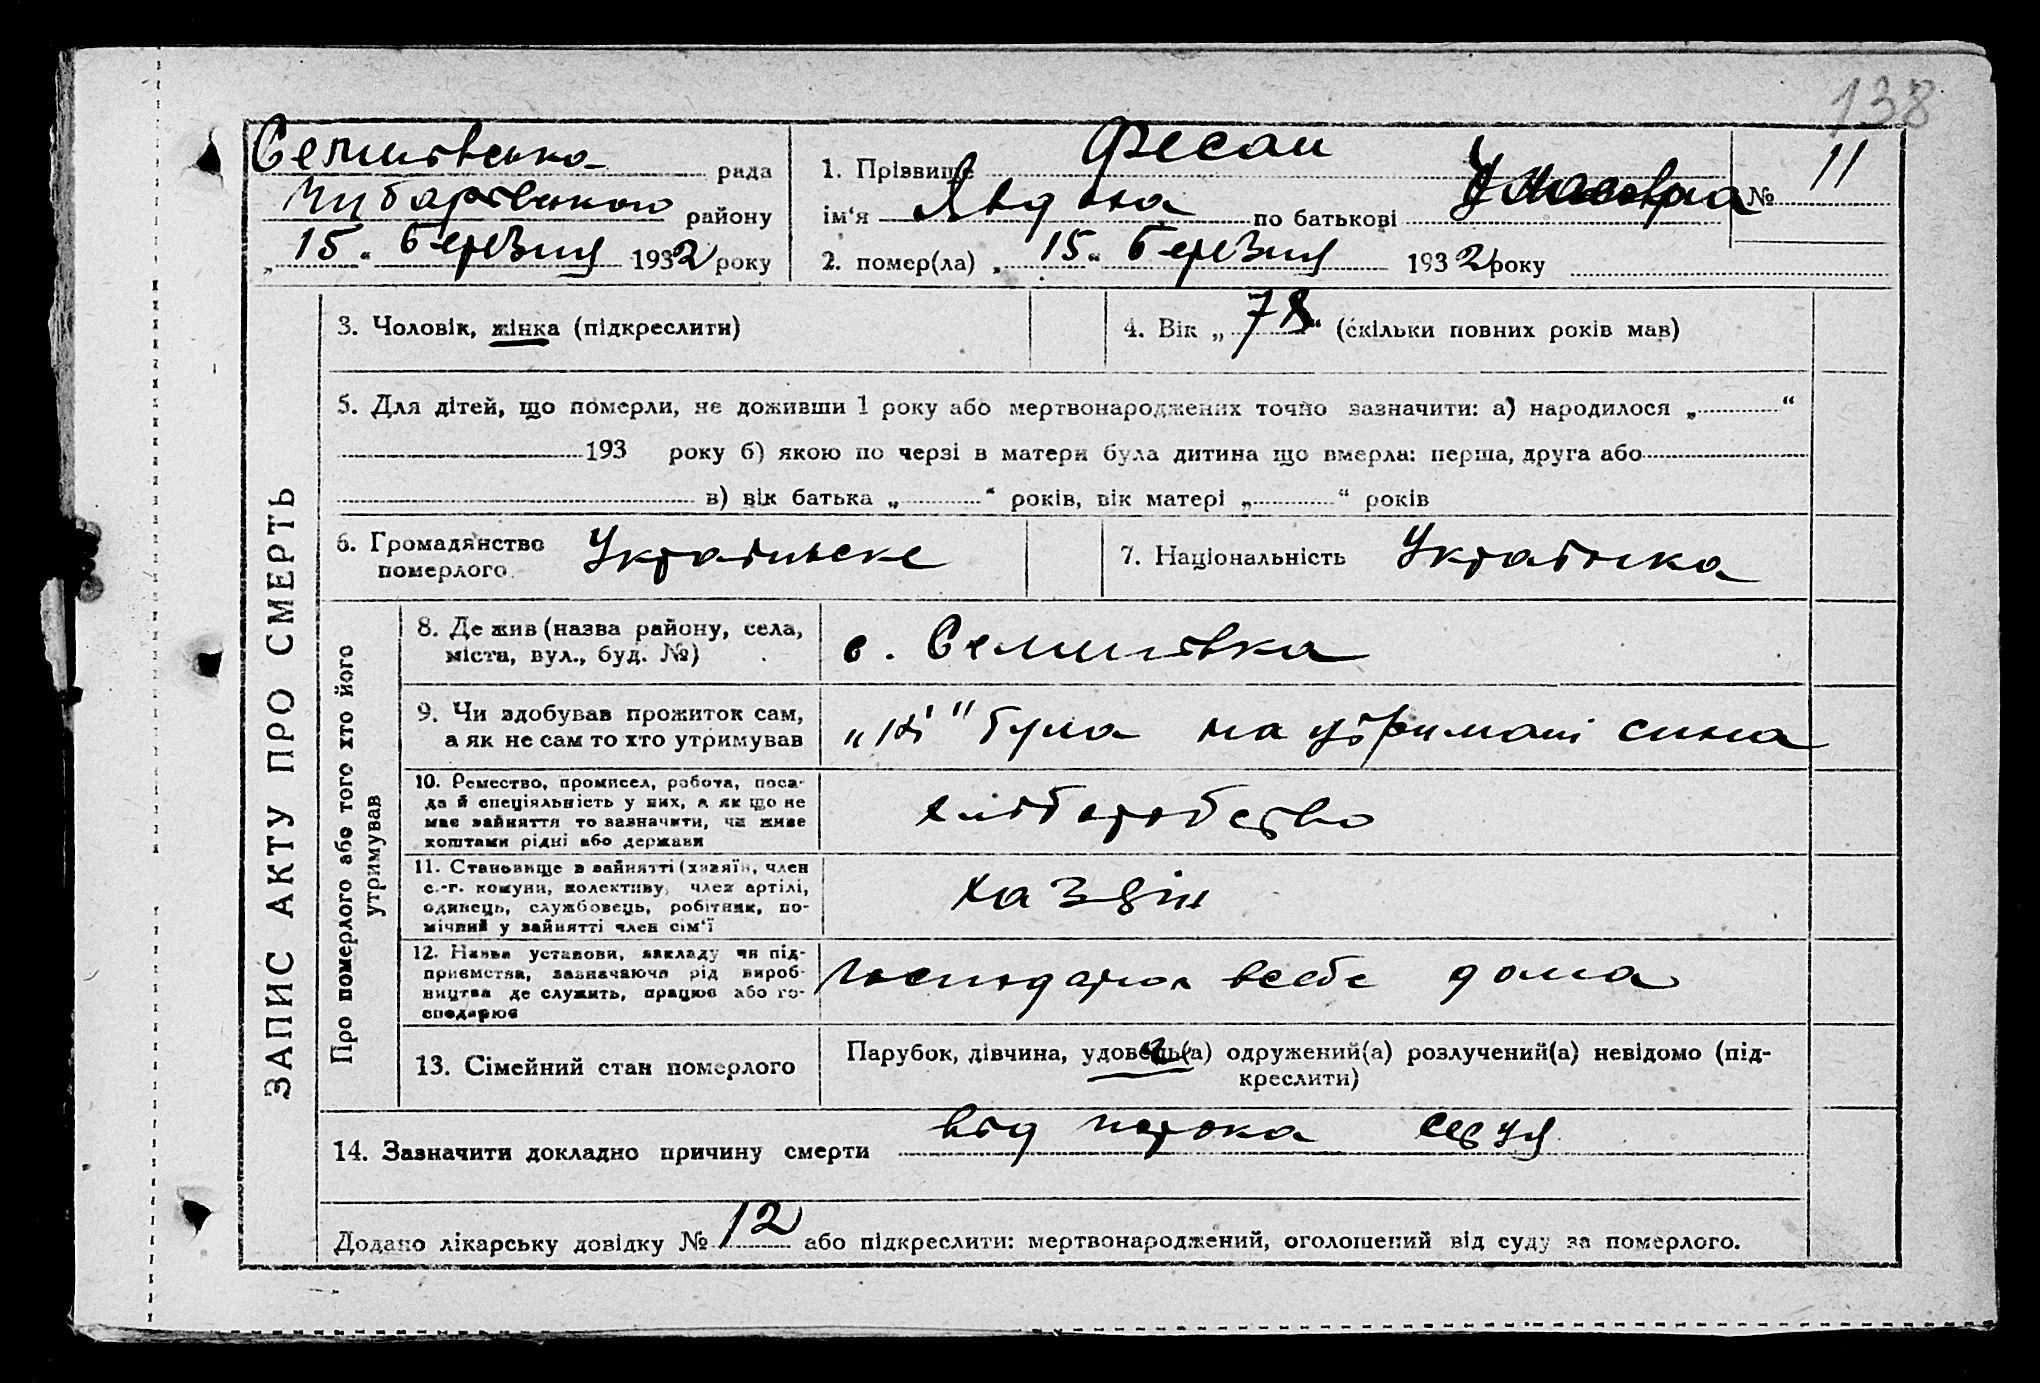 138
Семенівська рада
Чубарівського району
„15“ березня 1932 року
1. Прізвище Фесан
ім‘я Явдоха по батькові
№ 11
2. помер(ла) „15“ березня 1932 року
ЗАПИС АКТУ ПРО СМЕРТЬ
3. Чоловік, жінка (підкреслити)
4. Вік „78“ (скільки повних років мав)
5. Для дітей, що померли, не доживши 1 року або мертвонароджених точно зазначити: а) народилося „ “
193 року б) якою по черзі в матери була дитина що вмерла: перша, друга або
в) вік батька „ “ років, вік матері „ “ років
6. Громадянство померлого Українське
7. Національність Українка
Про померлого або того хто його утримував
8. Де жив (назва району, села,
міста, вул., буд. №)
с. Семенівка
9. Чи здобував прожиток сам,
а як не сам то хто утримував
була на утримані сина
10. Ремество, промисел, робота, поса-
да й спеціяльність у них, а як що не
має зайняття то зазначити, чи живе
коштами рідні або держави
хліборобство
11. Становище в зайнятті (хазяїн, член
с.-г. комуни, колективу, член артілі,
одинець, службовець, робітник, по-
мічний у зайнятті член сім‘ї
хазяїн
12. Назва установи, закладу чи під-
приємства, зазначаючи рід вироб-
ництва де служить, працює або го-
сподарює
всебе дома
13. Сімейний стан померлого
Парубок, дівчина, удовець(а) одружений(а) розлучений(а) невідомо (під-
креслити)
14. Зазначити докладно причину смерти від порока серця
Додано лікарську довідку № 12 або підкреслити: мертвонароджений, оголошений від суду за померлого.